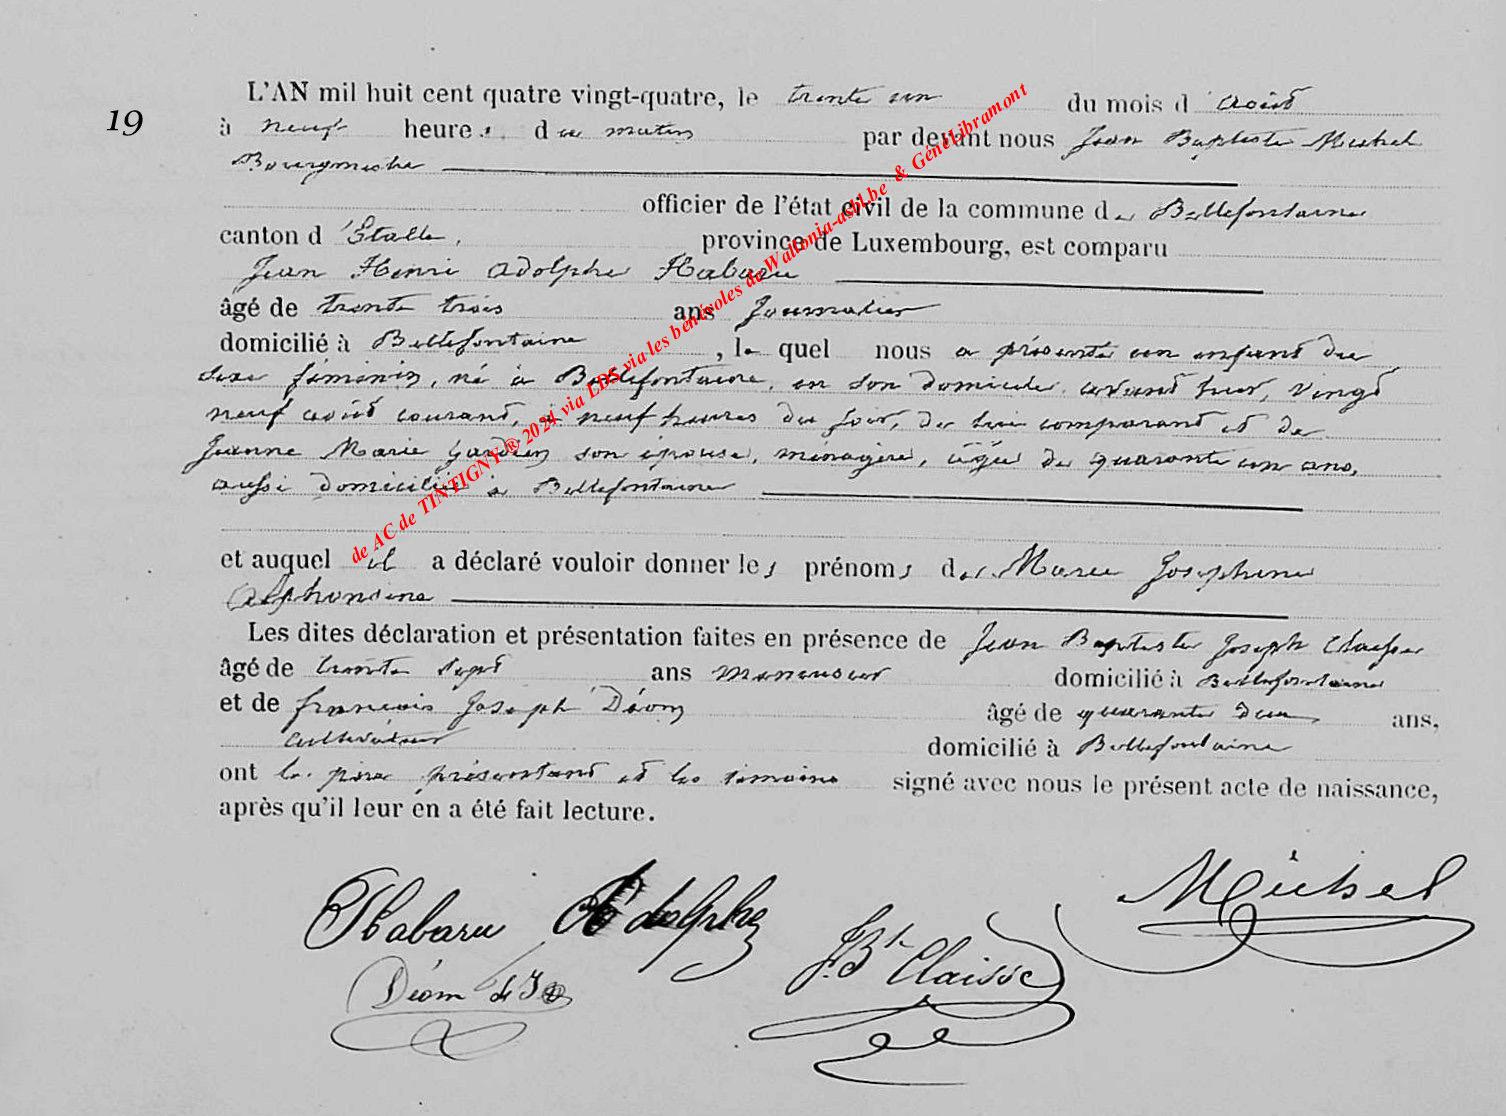 19
L'AN mil huit cent quatre vingt-quatre, le trente un du mois d'août
à neuf heures du matin par devant nous Jean Baptiste Michel
Bourgmestre
officier de l'état civil de la commune de Bellefontaine
canton d'Etalle, province de Luxembourg, est comparu
Jean Henri Adolphe Habaru
âgé de trente trois ans Journalier
domicilié à Bellefontaine, lequel nous a présenté un enfant du
sexe féminin, né à Bellefontaine, en son domicile, avant hier, vingt
neuf août courant, à neuf heures du soir, de lui comparant et de
Jeanne Marie son épouse, ménagère, âgée de quarante un ans,
aussi domiciliée à Bellefontaine
et auquel il a déclaré vouloir donner les prénoms de Marie Joséphine
Alphonsine
Les dites déclaration et présentation faites en présence de Jean Baptiste Joseph Claisse
âgé de trente sept ans domicilié à Bellefontaine
et de françois Joseph Déom âgé de quarante deux ans,
cultivateur domicilié à Bellefontaine
ont le père présentant et les témoins signé avec nous le présent acte de naissance,
après qu'il leur en a été fait lecture.
Habaru Adolphe
Michel
JBte Claisse
Déom
de AC de TINTIGNY® 2024 via LDS via les bénévoles de Wallonia-asbl.be & GénéLibramont